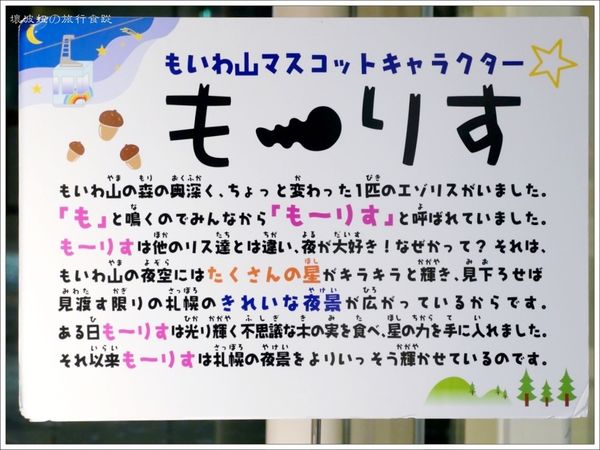 壞波妞の旅行食踨
もいわ山マスコットキャラクター
もーりす
もいわ山の森の奥深く、ちょっと変わった1匹のエゾリスがいました。
「も」と鳴くのでみんなから「もーりす」と呼ばれていました。
もーりすは他のリス達とは違い、夜が大好き！なぜかって？それは、
もいわ山の夜空にはたくさんの星がキラキラと輝き、見下ろせば
見渡す限りの札幌のきれいな夜景が広がっているからです。
ある日もーりすは光り輝く不思議な木の実を食べ、星の力を手に入れました。
それ以来もーりすは札幌の夜景をよりいっそう輝かせているのです。